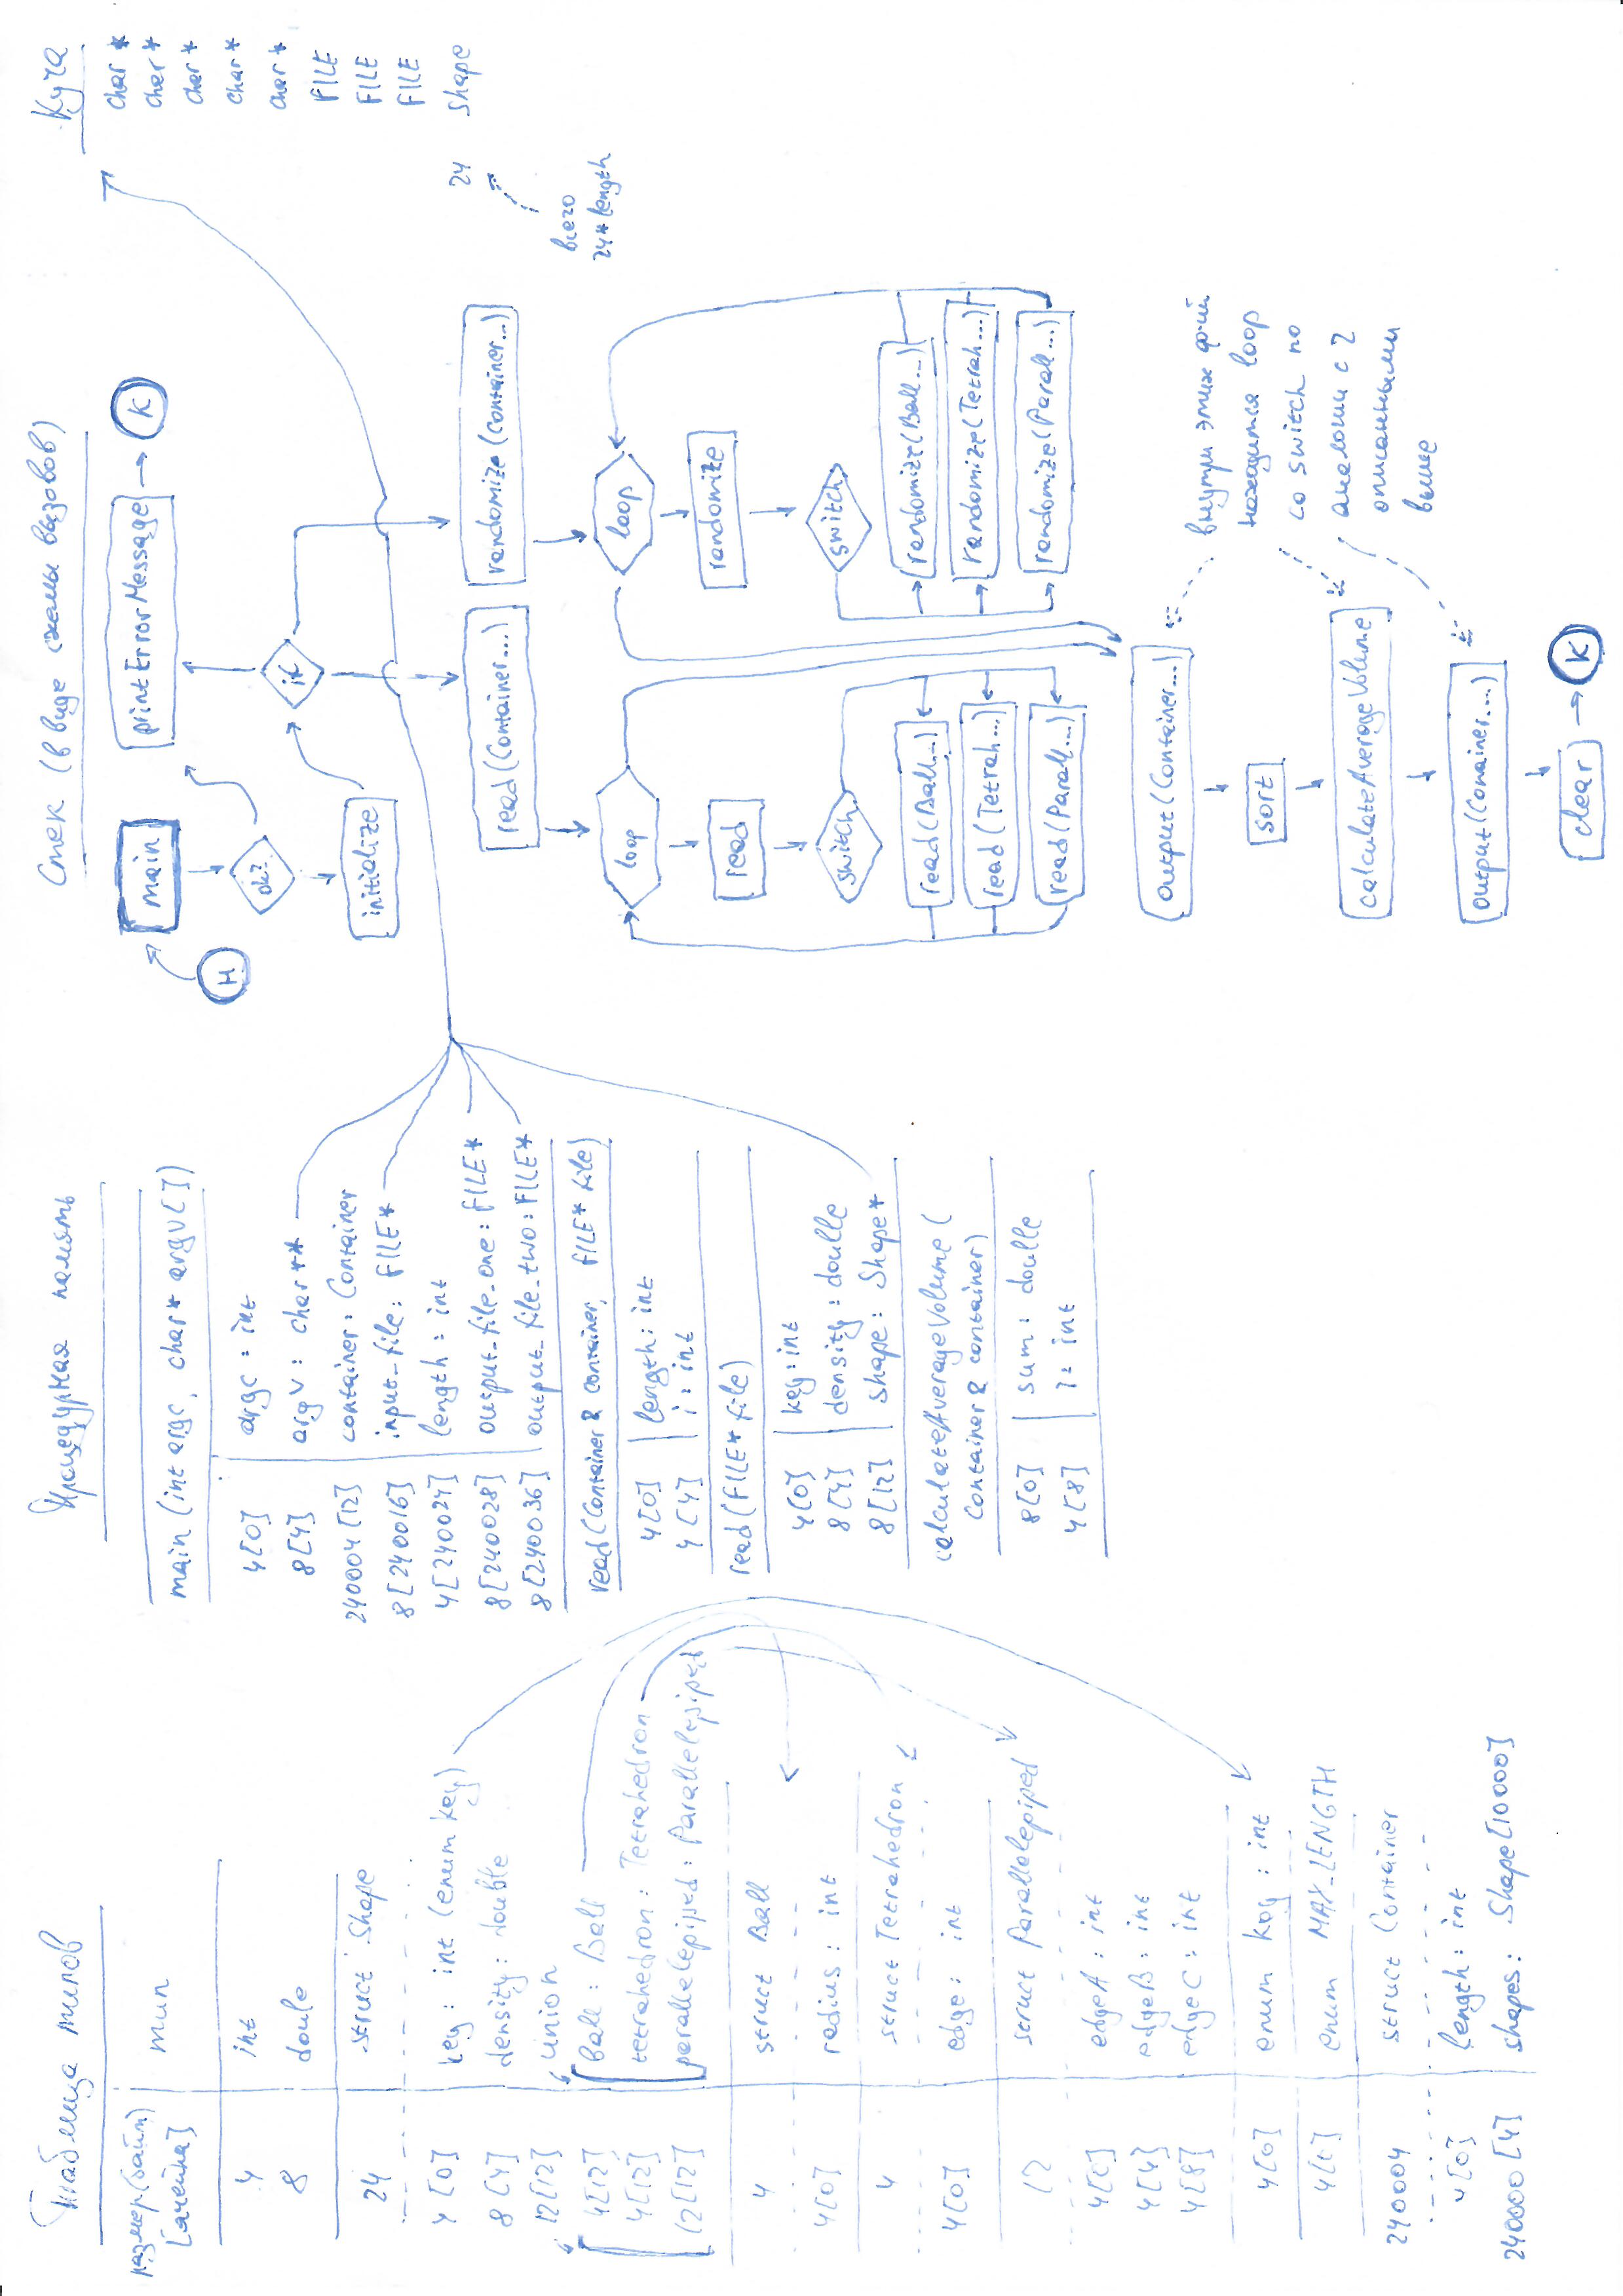 Таблица типов
размер (байт) [ячейка] тип
4 int
8 doule
24 struct Shape
4 [0] key: int (enum key)
8 [4] density: double
12 [12] union
4 [12] ball: Ball
4 [12] tetrahedron: Tetrahedron
12 [12] parallelepiped: Parallelepiped
4 struct Ball
4 [0] radius: int
4 struct Tetrahedron
4 [0] edge: int
12 struct Parallelepiped
4 [0] edgeA: int
4 [4] edgeB: int
4 [8] edgeC: int
4 [0] enum key: int
4 [0] enum MAX_LENGTH
240004 struct Container
4 [0] length: int
240000 [4] shapes: Shape[10000]
Процедурная память
main (int argc, char* argv[])
4 [0] argc: int
8 [4] argv: char**
240004 [12] container: Container
8 [240016] input_file: FILE*
4 [240024] length: int
8 [240028] output_file_one: FILE*
8 [240036] output_file_two: FILE*
read (Container & container, FILE* file)
4 [0] length: int
4 [4] i: int
read (FILE* file)
4 [0] key: int
8 [4] density: double
8 [12] shape: Shape*
calculateAverageVolume (
Container & container)
8 [0] sum: double
4 [8] i: int
Стек (в виде схемы вызовов)
main
printErrorMessage
К
Н
ok?
if
initialize
read (Container...)
randomize (Container...)
loop
loop
read
randomize
switch
switch
read (Ball...)
randomize (Ball...)
read (Tetrah...)
randomize (Tetrah...)
read (Parall...)
randomize (Parall...)
output (Container...)
sort
calculateAverageVolume
output (Conainer...)
clear
К
внутри этих ф-ий
находится loop
со switch по
аналогии с 2
описанными
выше
Куча
char *
char *
char *
char *
char *
FILE
FILE
FILE
24 Shape
всего
24*length